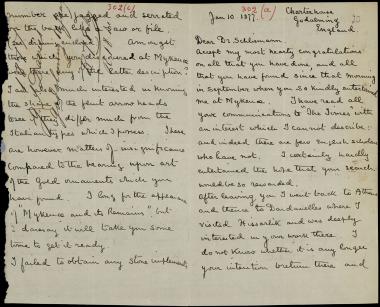 302 (a)
20
Charterhouse
Godalming
England.
Jan 10. 1877.
Dear Dr Schliemann
Accept my most hearty congratulations
on all that you have done, and all
that you have found since that morning
in September when you so kindly entertained
me at Mykenae. I have read all
your communications to "The Times" with
an interest which I cannot describe:
and indeed there are few English scholars
who have not. I certainly hardly
entertained the hope that your search
would be so rewarded.
After leaving you I went back to Athens
and thence to Dardanelles where I
visited Hissarlik and was deeply
interested in your work there. I
do not know whether it is any longer
your intention to return there and
302 (d)
number are jagged and serrated
on the back like a saw or file.
I see drawing enclosed. Amongst
those which you discovered at Mykenae
were there any of the latter description?
I am also much interested in knowing
the shape of the flint arrow heads
Do they differ much from the
Italian types which I possess. These
are however matters of insignificance
compared to the bearing upon art
of the Gold ornaments which you
have found. I long for the appearance
of Mykenae and its Remains, but
I daresay it will take you some
time to get it ready.
I failed to obtain any Stone implements